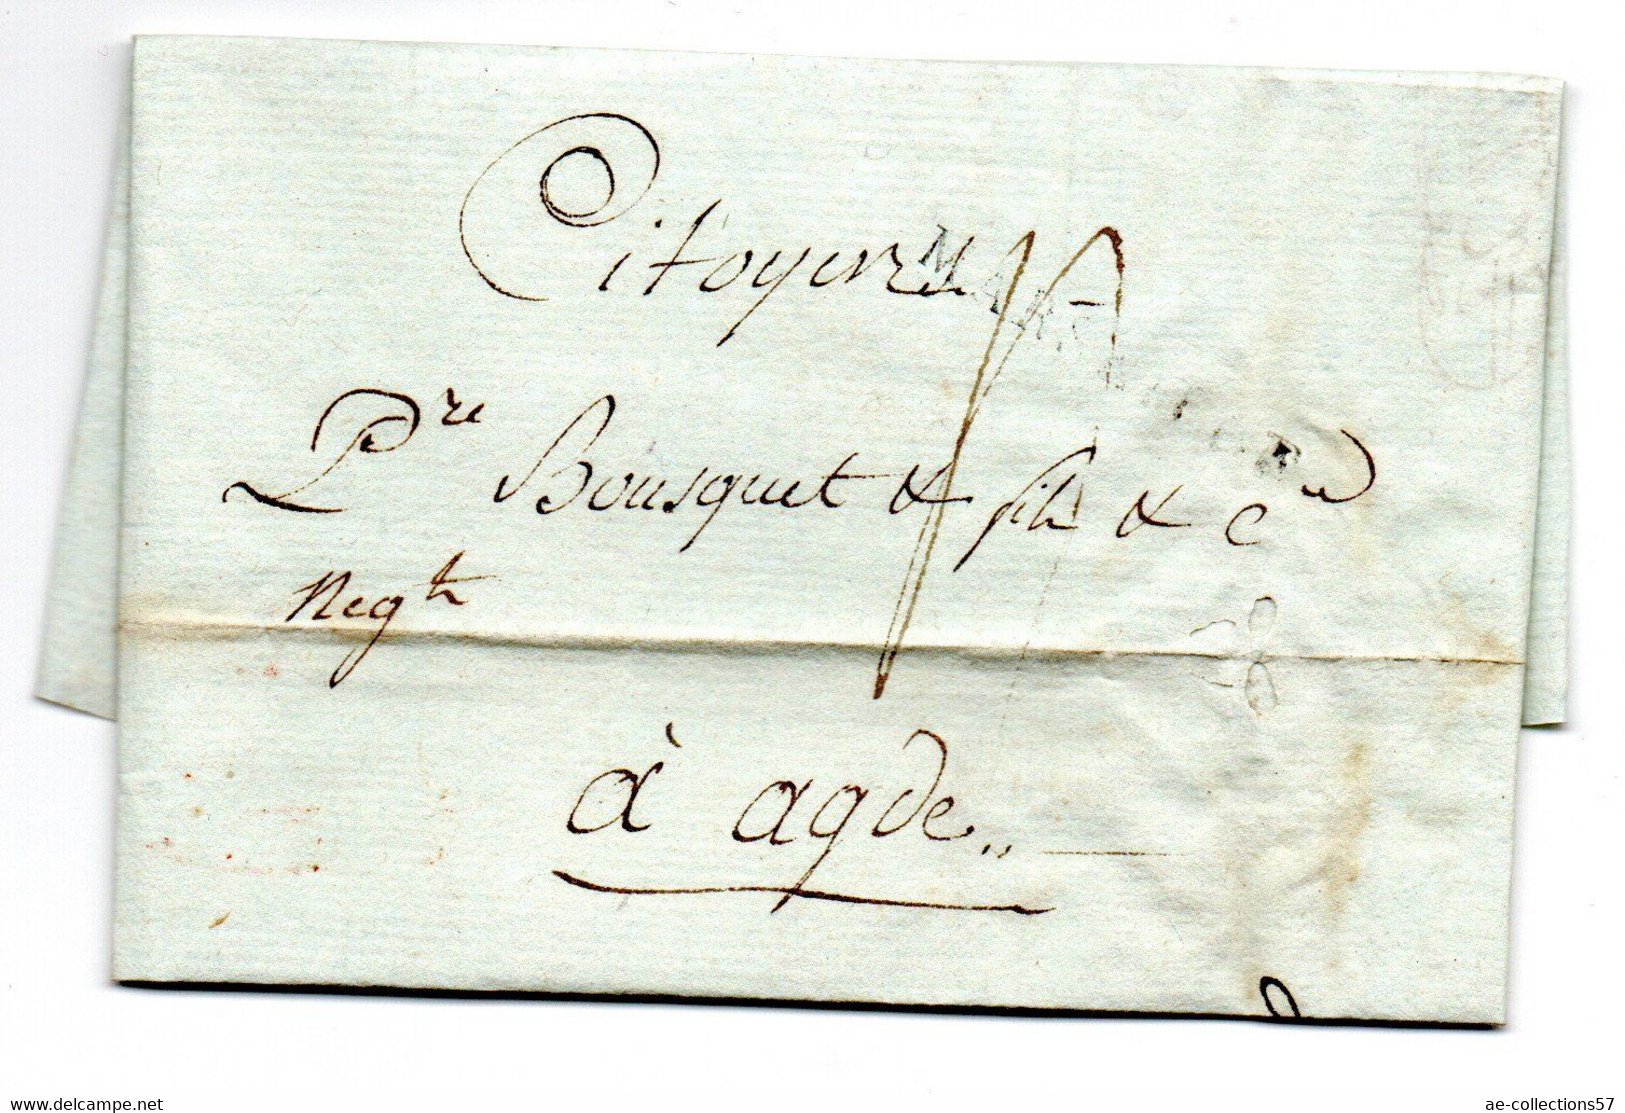 Citoyens
P.re Bousquet & fils & C.ie
Neg.ts
à agde
www.delcampe.net
ae-collections57